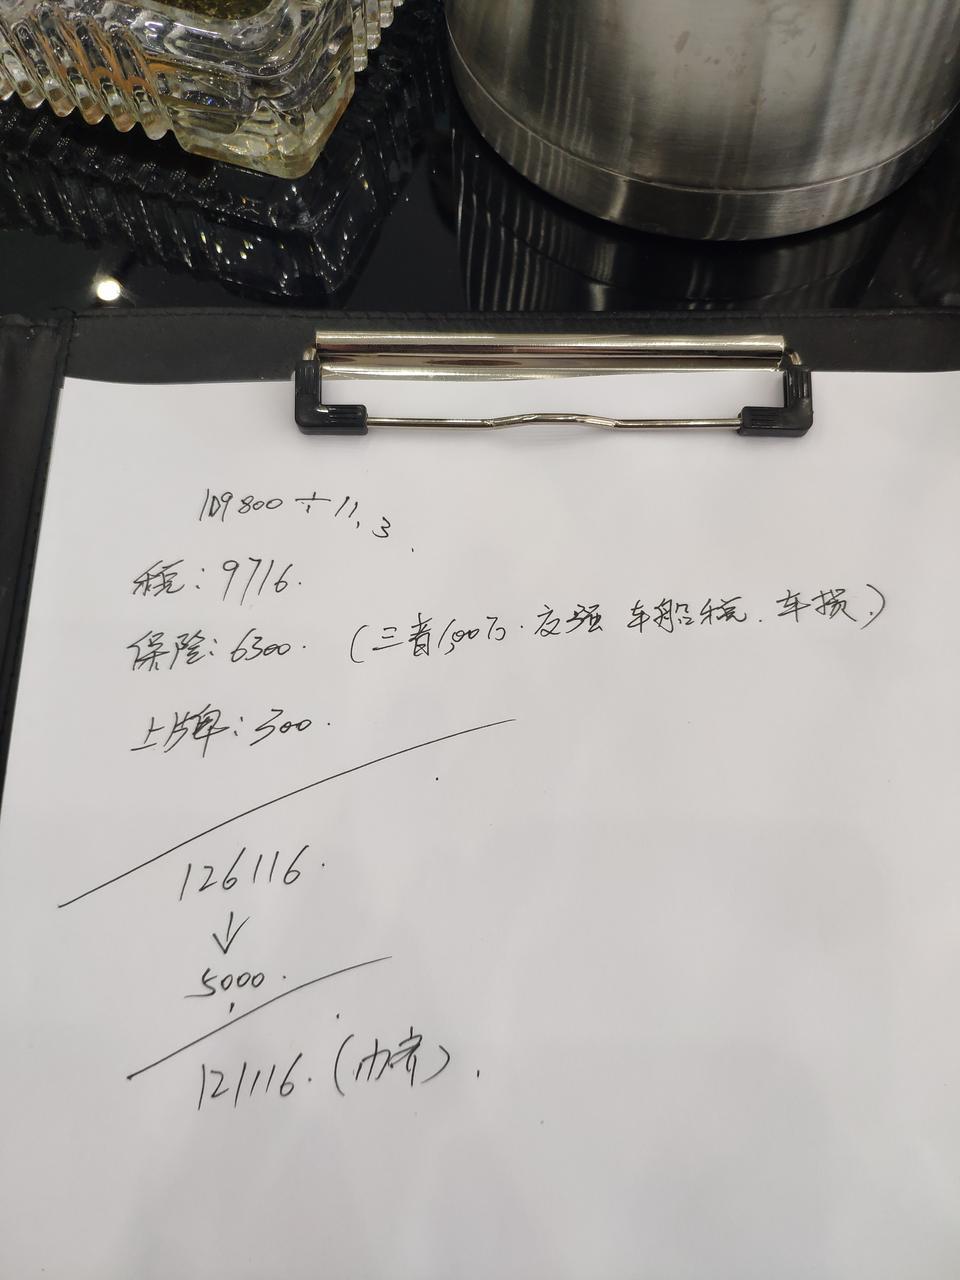 109800÷11.3
税：9716.
保险：6300. （三者100万. 交强 车船税. 车损.）
上牌：300.
126116.
↓
5000.
121116.（办齐）.